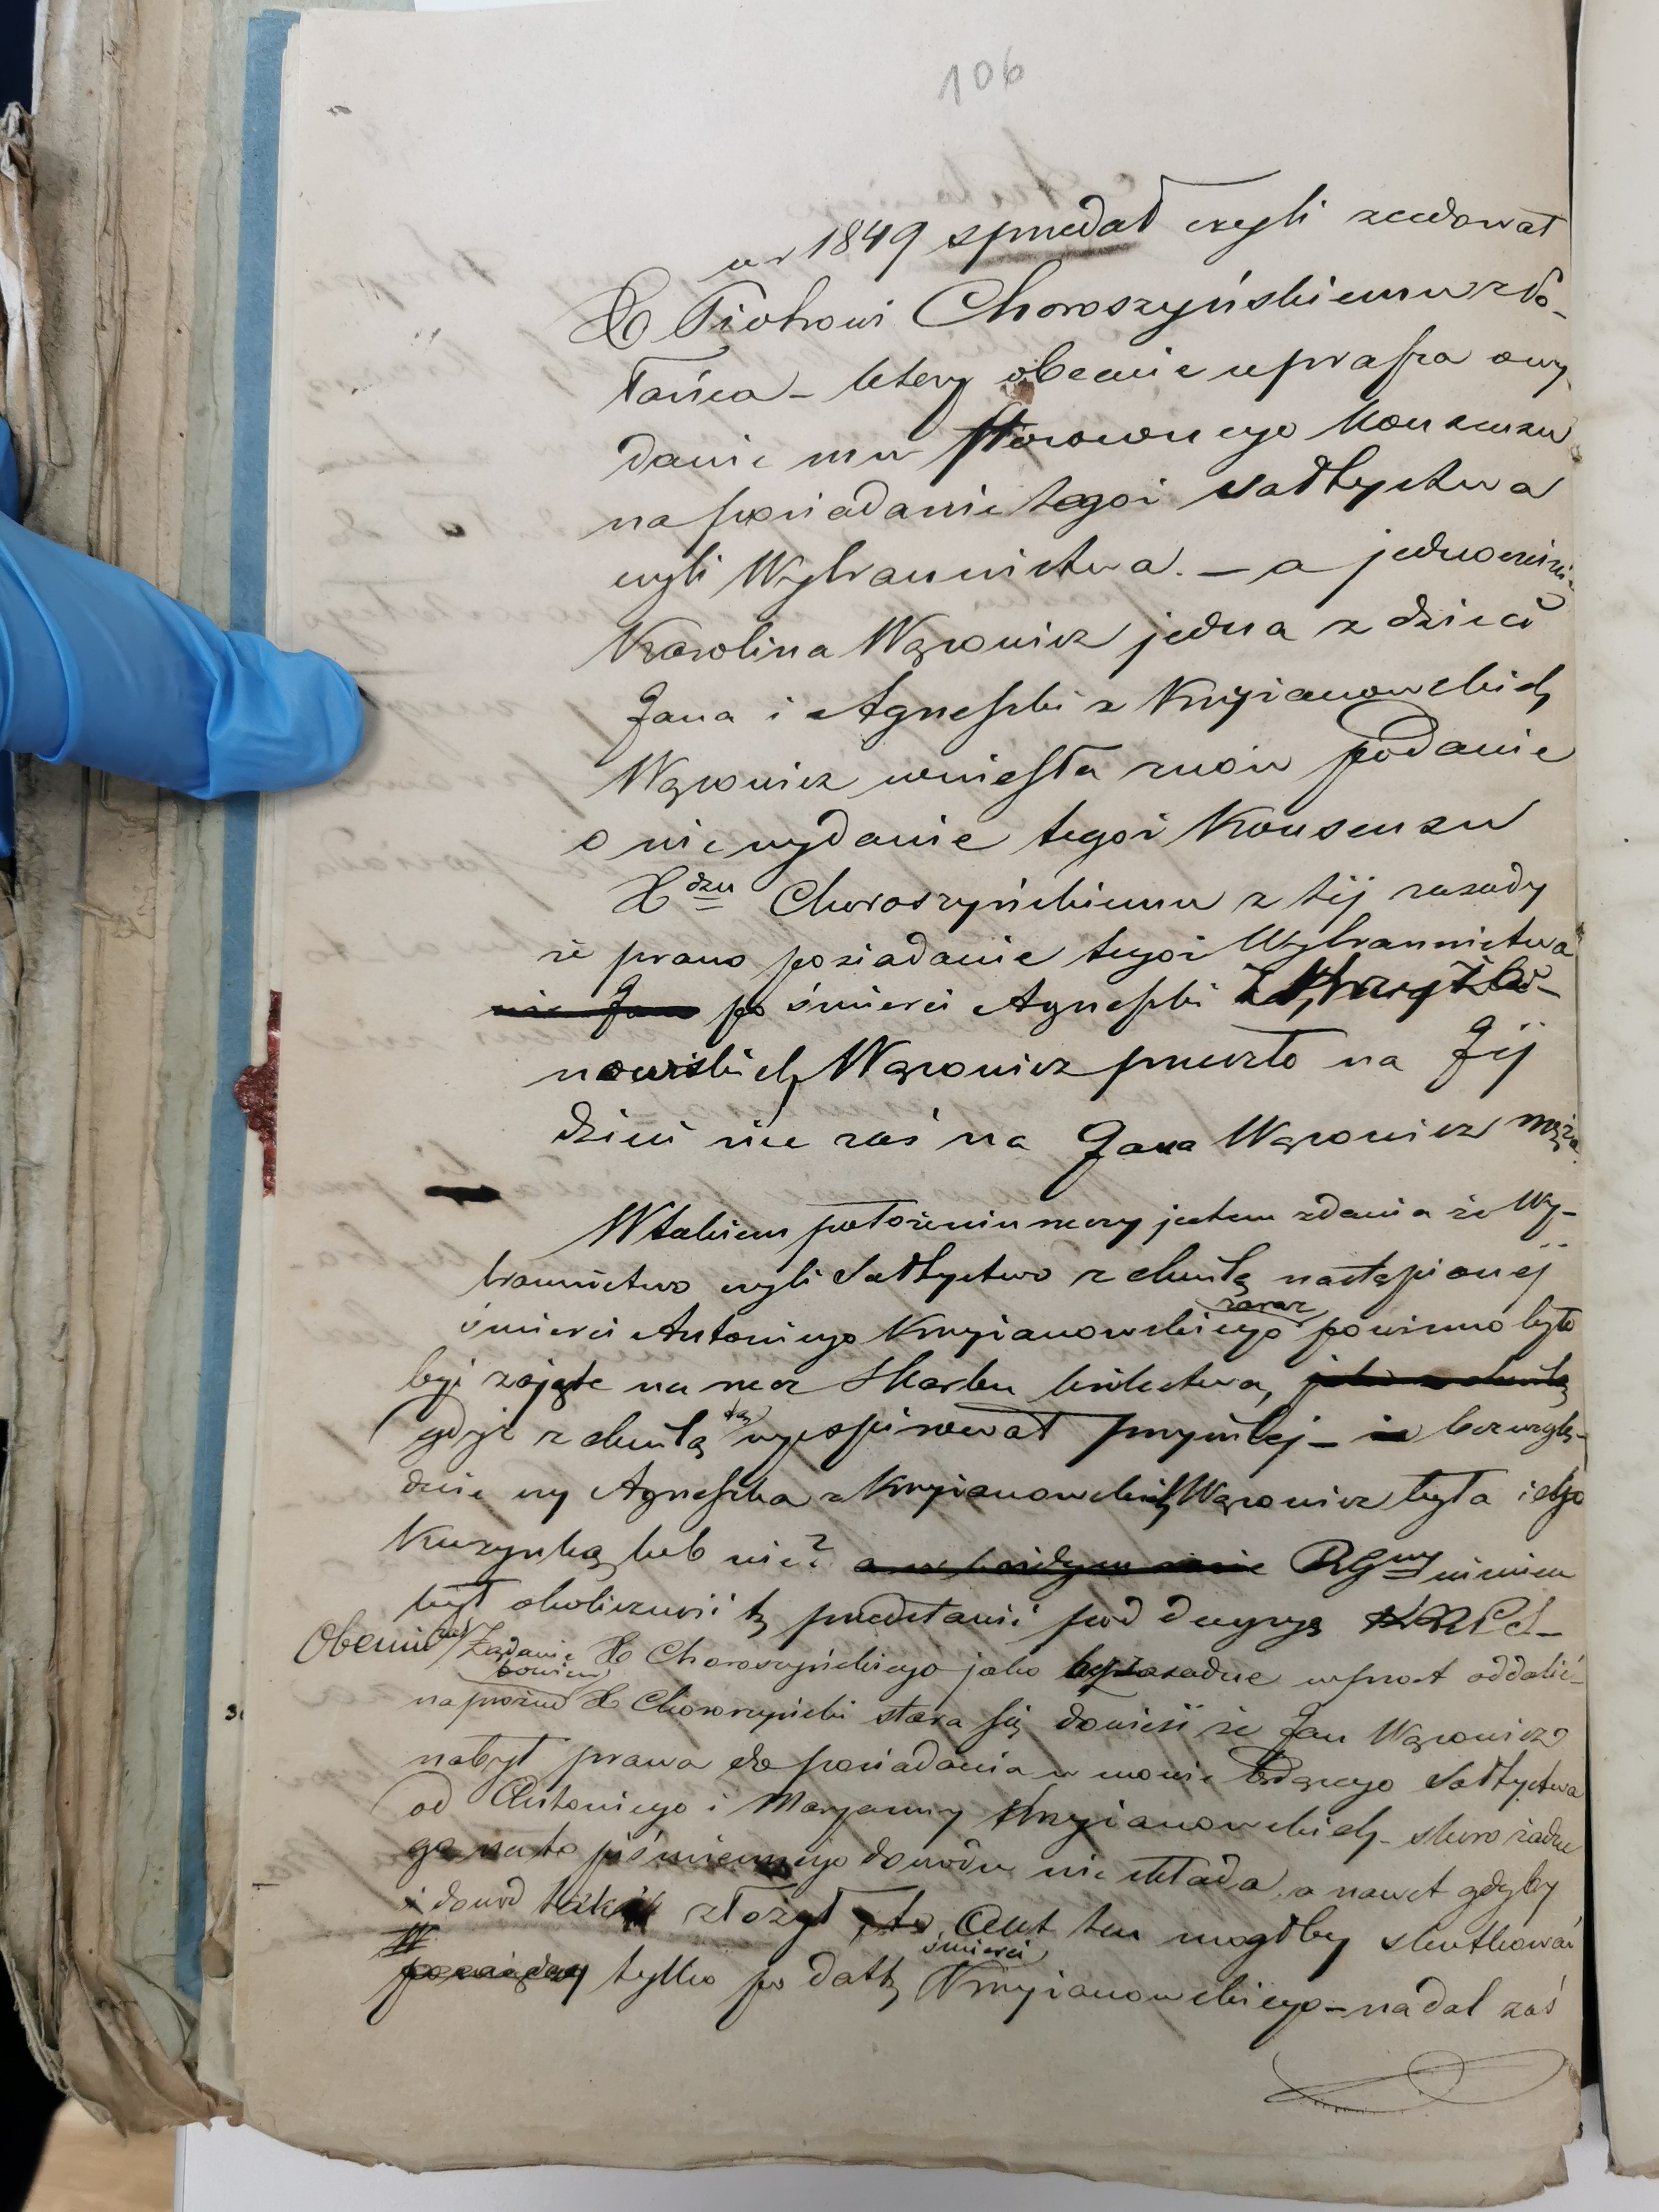 106
w r 1849 sprzedał czyli zcedował
X Piotrowi Choroszyńskiemu z Bo-
Tańca – który obecnie uprasza o wy
danie mu stosownego Konsensu
na posiadanie tegoż Sołtystwa
czyli Wybraniectwa. – a jednocześnie
Karolina Wąsowicz jedna z dzieci
Jana i Agneszki z Krzyżanowskich
Wąsowicz wniosła znów podanie
o nie wydanie tegoż Konsensu
X dzu Choroszyńskiemu z téj zasady
że prawo posiadanie tegoż Wybrannictwa
po śmierci Agneszki z Krzyża-
nowskich Wąsowicz przeszło na Jéj
dzieci nie zaś na Jana Wąsowicz męża
W takiem położeniu rzeczy jestem zdania że Wy-
brannictwo czyli Sołtystwo z chwilą nastąpionej
śmierci Antoniego Krzyżanowskiego zaraz powinno było
być zajęte na rzecz Skarbu Królestwa,
gdyż z chwilą tą wyexpirował przywilej – bez wzglę-
dnie czy Agneszka z Krzyżanowskich Wąsowicz była jego
Kuzynką lub nie? RGny winien
był okoliczność tę przedstawić pod decyzyę
Obecnie zaś Żądanie X Choroszyńskiego jako bezzasadne wprost oddalić –
napróżno bowiem X Choroszyński stara się dowieść że Jan Wąsowicz
nabył prawa do posiadania w mowie będącego Sołtystwa
od Antoniego i Maryanny Krzyżanowskich – skoro żadne
go na to piśmiennego dowodu nie składa, a nawet gdyby
i dowód taki złożył, to Akt ten mógłby skutkować
tylko po datę śmierci Krzyżanowskiego – nadal zaś